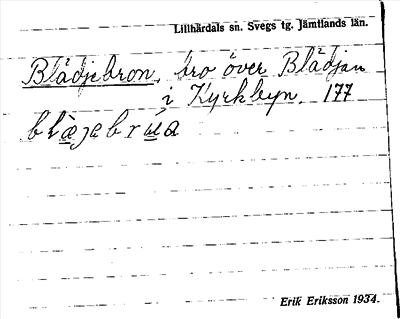 Lillhärdals sn. Svegs tg. Jämtlands län.
Blådjebron, bro över Blådjan
i Kyrkbyn. 177
Erik Eriksson 1934.